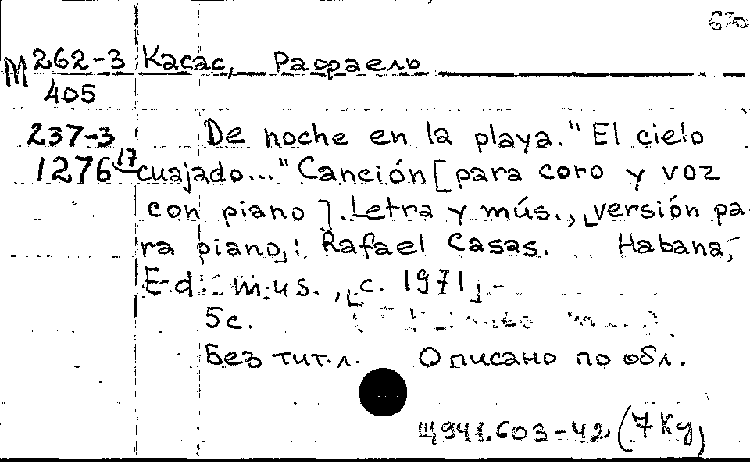 670
М 262-3 Касас, Рафаель
405
237-3 De noche en la playa. "El cielo
1276 17 cuajado..." Canción [para coro y voz
con piano]. Letra y mús., [versión pa-
ra piano]: Rafael Casas. Habana,
Ed. mus., [c. 1971]. -
5 с.
Без тит. л. Описано по обл.
Щ941.603-42 (7 Ку)